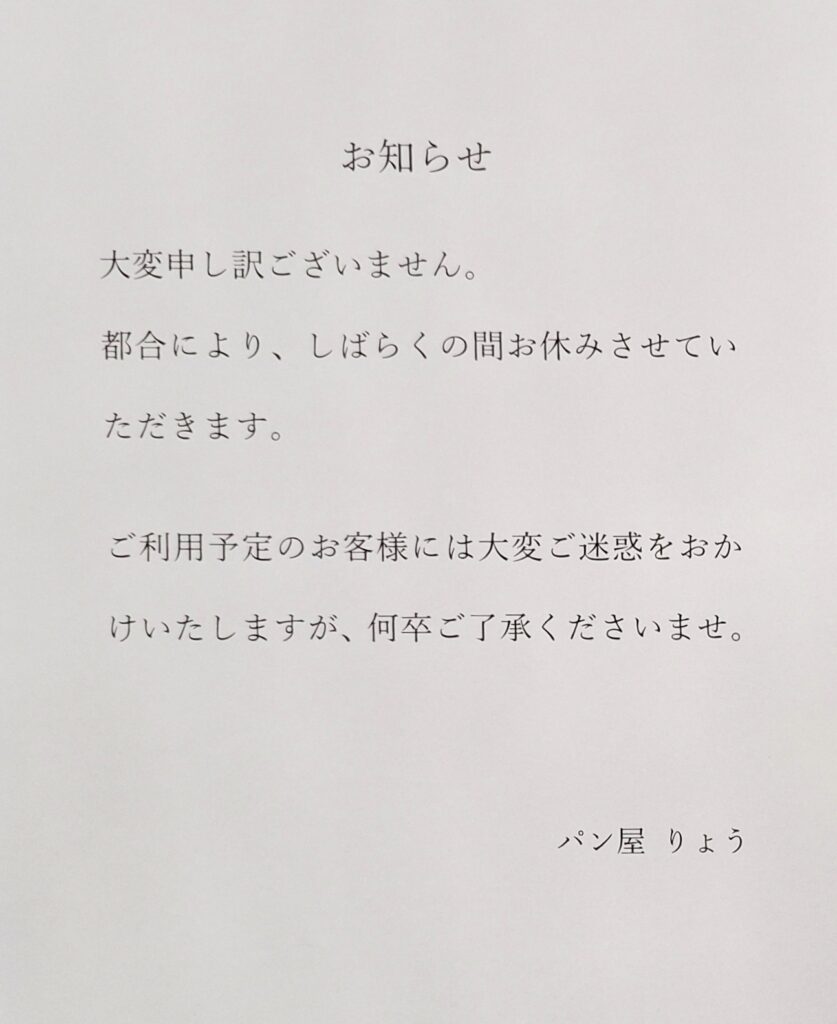 お知らせ
大変申し訳ございません。
都合により、しばらくの間お休みさせてい
ただきます。
ご利用予定のお客様には大変ご迷惑をおか
けいたしますが、何卒ご了承くださいませ。
パン屋 りょう